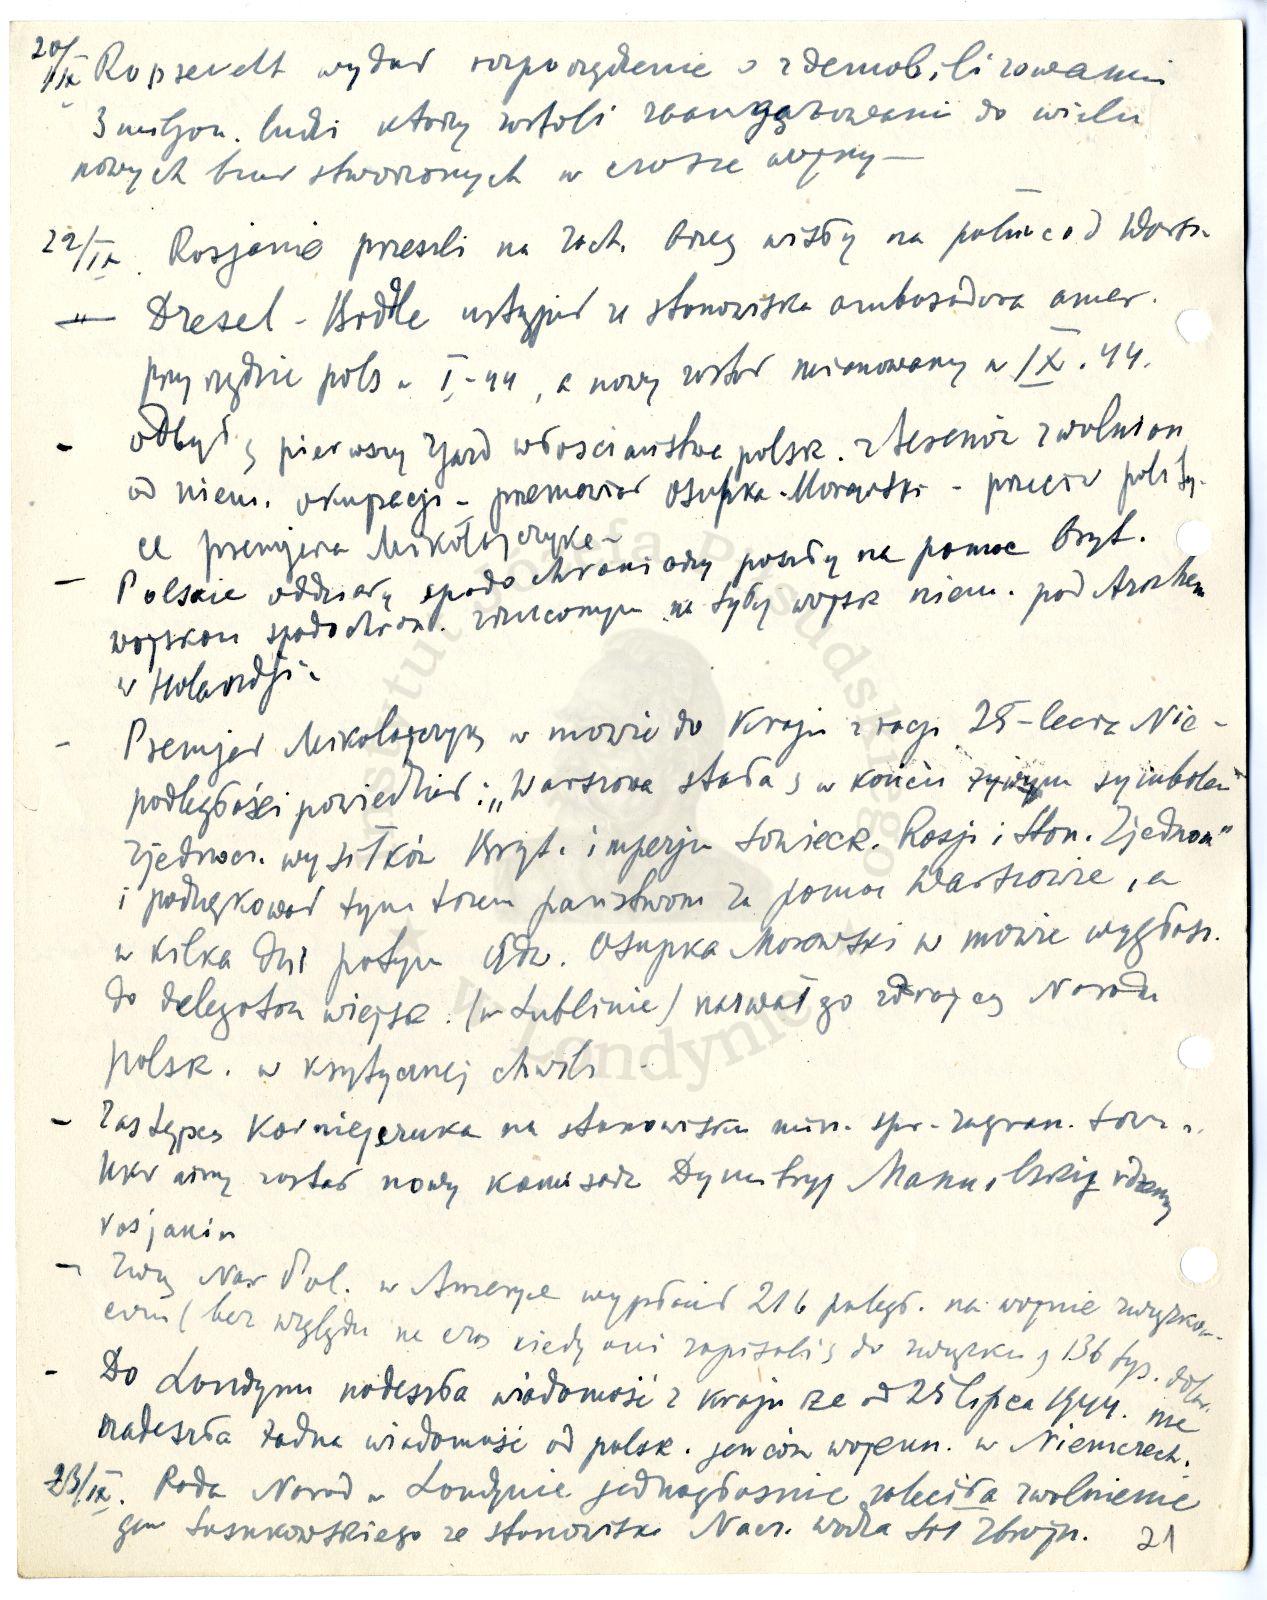 20/IX Roosevelt wydał rozporządzenie o zdemobilizowaniu
3 miljon. ludzi którzy zostali zaangażowani do wielu
nowych biur stworzonych w czasie wojny —
22/IX. Rosjanie przeszli na zach. brzeg wisły na północ od Warsz.
— " — Drexel - Biddle ustąpił ze stanowiska ambasadora amer.
przy rządzie pols w I-44, a nowy został mianowany w IX.44.
- odbył się pierwszy zjazd włościaństwa polsk. z terenów zwolnion
od niem. okupacji - przemawiał Osupka-Morawski - przeciw polity-
ce premjera Mikołajczyka -
- Polskie oddziały spadochroniarzy poszły na pomoc bryt.
wojskom spadochron. zrzuconym na tyły wojsk niem. pod Arnhem
w Holandji -
- Premjer Mikołajczyk w mowie do Kraju z racji 25-lecia Nie-
podległości powiedział: „Warszawa stała się w końcu żywym symbolem
zjednocz. wysiłków Bryt. imperju Sowieck. Rosji i Stan. Zjednocz"
i podziękował tym trzem państwom za pomoc Warszawie, a
w kilka dni potym Edw. Osupka Morawski w mowie wygłosz.
do delegatów wiejsk. (w Lublinie) nazwał go zdrajcą Narodu
polsk. w krytycznej chwili -
- Zastępcą Korniejczuka na stanowisku min. spr. zagran. sow.
Ukrainy został nowy komisarz Dymitryj Manuilskij rdzenny
rosjanin
- Zwią Nar Pol. w Ameryce wypłacił 216 poległ. na wojnie związkow-
com (bez względu na czas kiedy oni zapisali się do związku) 136 tys. dolar.
- Do Londynu nadeszła wiadomość z kraju że od 25 lipca 1944. nie
nadeszła żadna wiadomość od polsk. jeńców wojenn. w Niemczech.
23/IX. Rada Narod w Londynie jednogłośnie zaleciła zwolnienie
gen Sosnkowskiego ze stanowiska Nacz. wodza Sił Zbrojn. 21
Instytut Józefa Piłsudskiego
w Londynie